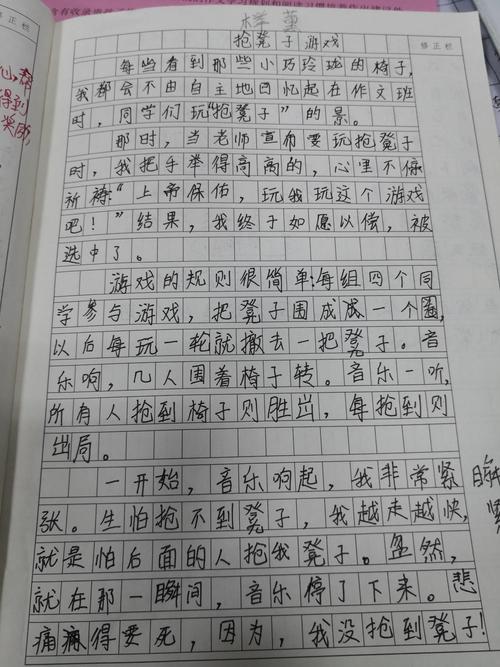 修正栏
抢凳子游戏
修正栏
每当看到那些小巧玲珑的椅子,
我都会不由自主地回忆起在作文班
时,同学们玩“抢凳子”的景。
那时,当老师宣布要玩抢凳子
时,我把手举得高高的,心里不停
祈祷:“上帝保佑,玩我玩这个游戏
吧!”结果,我终于如愿以偿,被
选中了。
游戏的规则很简单:每组四个同
学参与游戏,把凳子围成成一个圈,
以后每玩一轮就撤去一把凳子。音
乐响,几人围着椅子转。音乐一听,
所有人抢到椅子则胜出,每抢到则
出局。
一开始,音乐响起,我非常紧
张。生怕抢不到凳子,我越走越快,
就是怕后面的人抢我凳子。忽然,
就在那一瞬间,音乐停了下来。悲
痛痛得要死,因为,我没抢到凳子!
心帮
得到
奖励